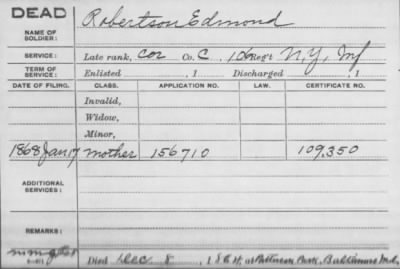 DEAD
NAME OF SOLDIER: Robertson Edmond
SERVICE: Late rank, Cor Co. C, 106 Reg't N.Y. Inf
TERM OF SERVICE: Enlisted , 1 Discharged , 1
DATE OF FILING. CLASS. APPLICATION NO. LAW. CERTIFICATE NO.
Invalid,
Widow,
Minor,
1868 Jan 17 Mother 156710 109,350
ADDITIONAL SERVICES:
Died Dec 8, 186 at Patterson Park, Baltimore Md.